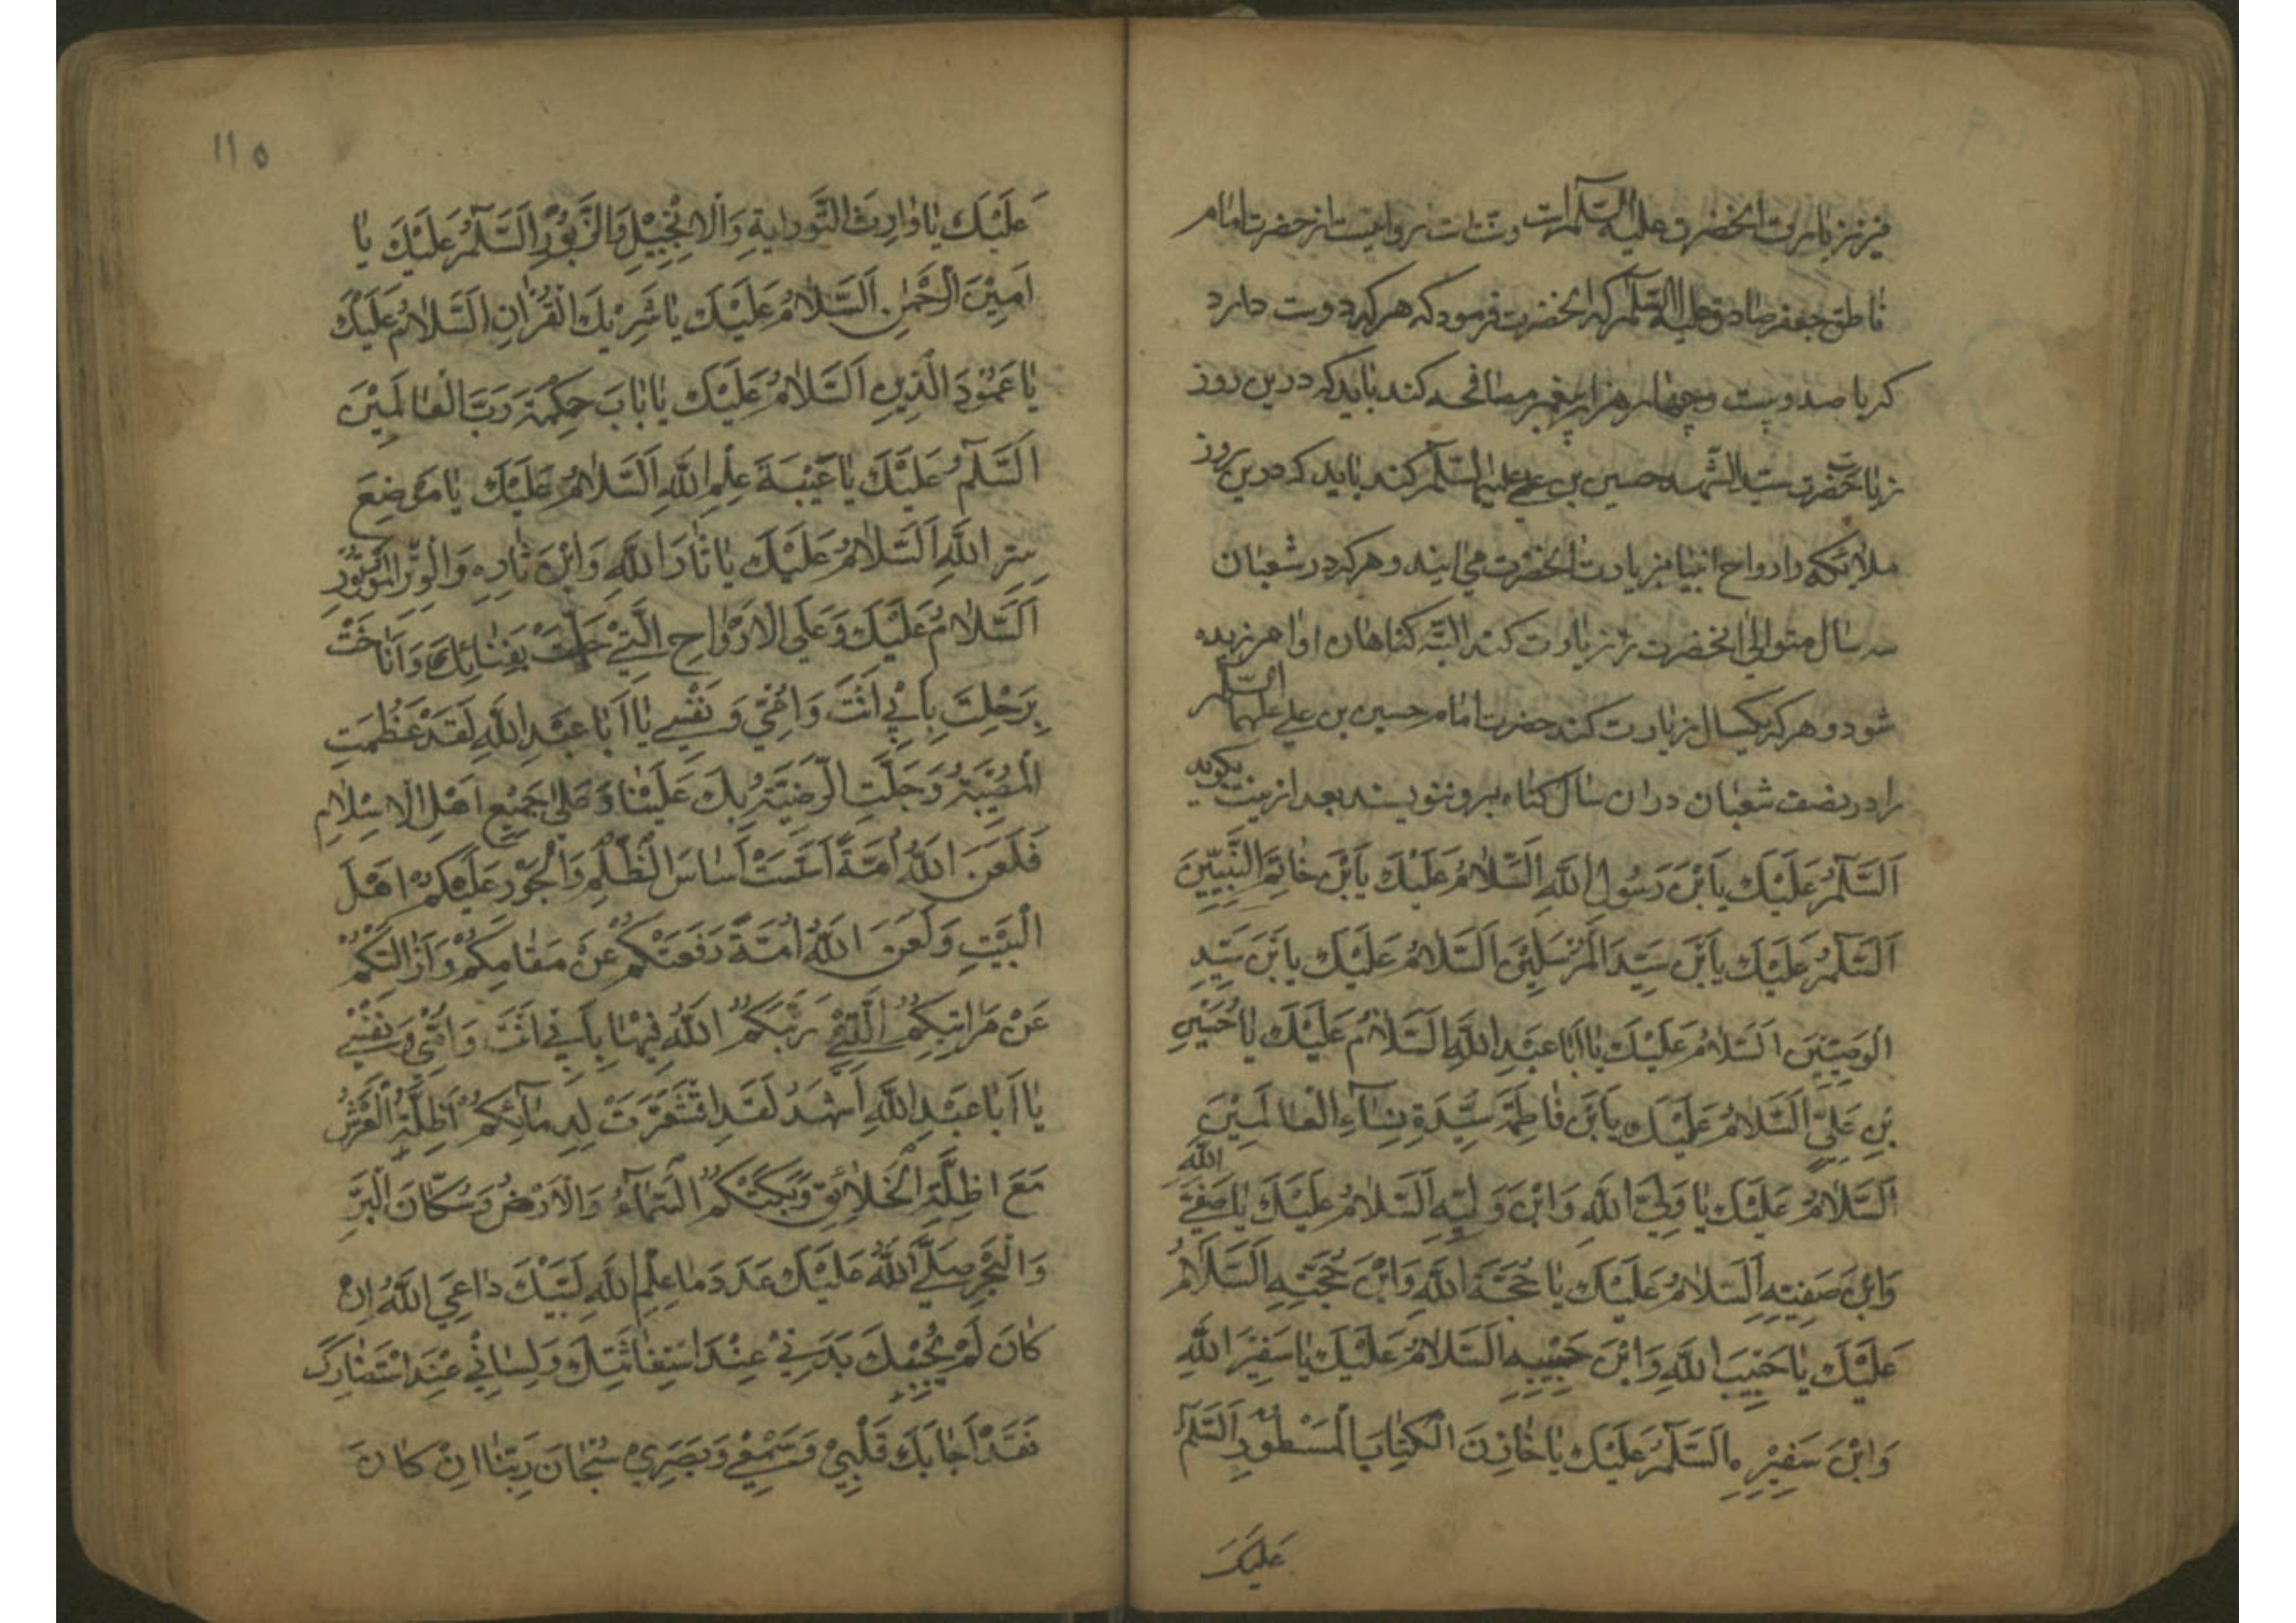 نیز زیارت انحضرت علیه السلم است و سنت است روایتست از حضرت امام
ناطق جعفر صادق علیه السلم که انحضرت فرمود که هر که دوست دارد
که با صد و بیست و چهار هزار پیغمبر مصافحه کند باید که درین روز
زیارت حضرت سید الشهدا حسین بن علی علیهما السلم کند باید که درین روز
ملائکه و ارواح انبیا بزیارت انحضرت می ایند و هر که در شعبان
سه سال متوالی انحضرت را زیارت کند البته کناهان او امرزیده
شود و هر که یکسال زیارت کند حضرت امام حسین بن علی علیهما السلم
را در نصف شعبان در ان سال کناه برو ننویسند بعد از نیت بکوید
اَلسَّلَمُ عَلَیْكَ یَابْنَ رَسُولِ اللّٰهِ اَلسَّلَامُ عَلَیْكَ یَابْنَ خَاتِمِ النَّبِیِّینَ
اَلسَّلَمُ عَلَیْكَ یَابْنَ سَیِّدِ الْمُرْسَلِینَ اَلسَّلَامُ عَلَیْكَ یَابْنَ سَیِّدِ
الْوَصِیِّینَ اَلسَّلَامُ عَلَیْكَ یَا اَبَا عَبْدِ اللّٰهِ اَلسَّلَامُ عَلَیْكَ یَا حُسَیْنِ
بْنِ عَلِیٍّ اَلسَّلَامُ عَلَیْكَ یَابْنَ فَاطِمَةَ سَیِّدَةِ نِسَآءِ الْعَالَمِیْنَ
اَلسَّلَامُ عَلَیْكَ یَا وَلِیَّ اللّٰهِ وَابْنَ وَلِیِّهِ اَلسَّلَامُ عَلَیْكَ یَا صَفِیَّ اللّٰهِ
وَابْنَ صَفِیِّهِ اَلسَّلَامُ عَلَیْكَ یَا حُجَّةَ اللّٰهِ وَابْنَ حُجَّتِهِ اَلسَّلَامُ
عَلَیْكَ یَا حَبِیبَ اللّٰهِ وَابْنَ حَبِیْبِهِ اَلسَّلَامُ عَلَیْكَ یَا سَفِیْرَ اللّٰهِ
وَابْنَ سَفِیْرِهِ اَلسَّلَمُ عَلَیْكَ یَا خَازِنَ الْكِتَابِ الْمَسْطُوْرِ اَلسَّلَمُ
عَلَیْكَ
١١٥
عَلَیْكَ یَا وَارِثَ التَّوْرٰیةِ وَالْاِنْجِیْلِ وَالزَّبُوْرِ اَلسَّلَمُ عَلَیْكَ یَا
اَمِیْنَ الرَّحْمٰنِ اَلسَّلَامُ عَلَیْكَ یَا شَرِیْكَ الْقُرْاٰنِ اَلسَّلَامُ عَلَیْكَ
یَا عَمُوْدَ الدِّیْنِ اَلسَّلَامُ عَلَیْكَ یَا بَابَ حِكْمَةِ رَبِّ الْعَالَمِیْنَ
اَلسَّلَمُ عَلَیْكَ یَا عَیْبَةَ عِلْمِ اللّٰهِ اَلسَّلَامُ عَلَیْكَ یَا مَوْضِعَ
سِرِّ اللّٰهِ اَلسَّلَامُ عَلَیْكَ یَا ثَارَ اللّٰهِ وَابْنَ ثَارِهِ وَالْوِتْرَ الْمَوْتُوْرِ
اَلسَّلَامُ عَلَیْكَ وَعَلَی الْاَرْوَاحِ الَّتِیْ حَلَّتْ بِفِنَائِكَ وَاَنَاخَتْ
بِرَحْلِكَ بِاَبِیْ اَنْتَ وَاُمِّیْ وَنَفْسِیْ یَا اَبَا عَبْدِ اللّٰهِ لَقَدْ عَظُمَتِ
الْمُصِیْبَةُ وَجَلَّتِ الرَّزِیَّةُ بِكَ عَلَیْنَا وَعَلٰی جَمِیْعِ اَهْلِ الْاِسْلَامِ
فَلَعَنَ اللّٰهُ اُمَّةً اَسَّسَتْ اَسَاسَ الظُّلْمِ وَالْجَوْرِ عَلَیْكُمْ اَهْلَ
الْبَیْتِ وَلَعَنَ اللّٰهُ اُمَّةً دَفَعَتْكُمْ عَنْ مَقَامِكُمْ وَاَزَالَتْكُمْ
عَنْ مَرَاتِبِكُمُ الَّتِیْ رَتَّبَكُمُ اللّٰهُ فِیْهَا بِاَبِیْ اَنْتَ وَاُمِّیْ وَنَفْسِیْ
یَا اَبَا عَبْدِ اللّٰهِ اَشْهَدُ لَقَدِ اقْشَعَرَّتْ لِدِمَآئِكُمْ اَظِلَّةُ الْعَرْشِ
مَعَ اَظِلَّةِ الْخَلَائِقِ وَبَكَتْكُمُ السَّمَآءُ وَالْاَرْضُ وَسُكَّانَ الْبَرِّ
وَالْبَحْرِ صَلَّی اللّٰهُ عَلَیْكَ عَدَدَ مَا عِلْمِ اللّٰهِ لَبَّیْكَ دَاعِیَ اللّٰهِ اِنْ
كَانَ لَمْ یُجِبْكَ بَدَنِیْ عِنْدَ اسْتِغَاثَتِكَ وَلِسَانِیْ عِنْدَ اسْتِنْصَارِكَ
فَقَدْ اَجَابَكَ قَلْبِیْ وَسَمْعِیْ وَبَصَرِیْ سُبْحَانَ رَبِّنَا اِنْ كَانَ